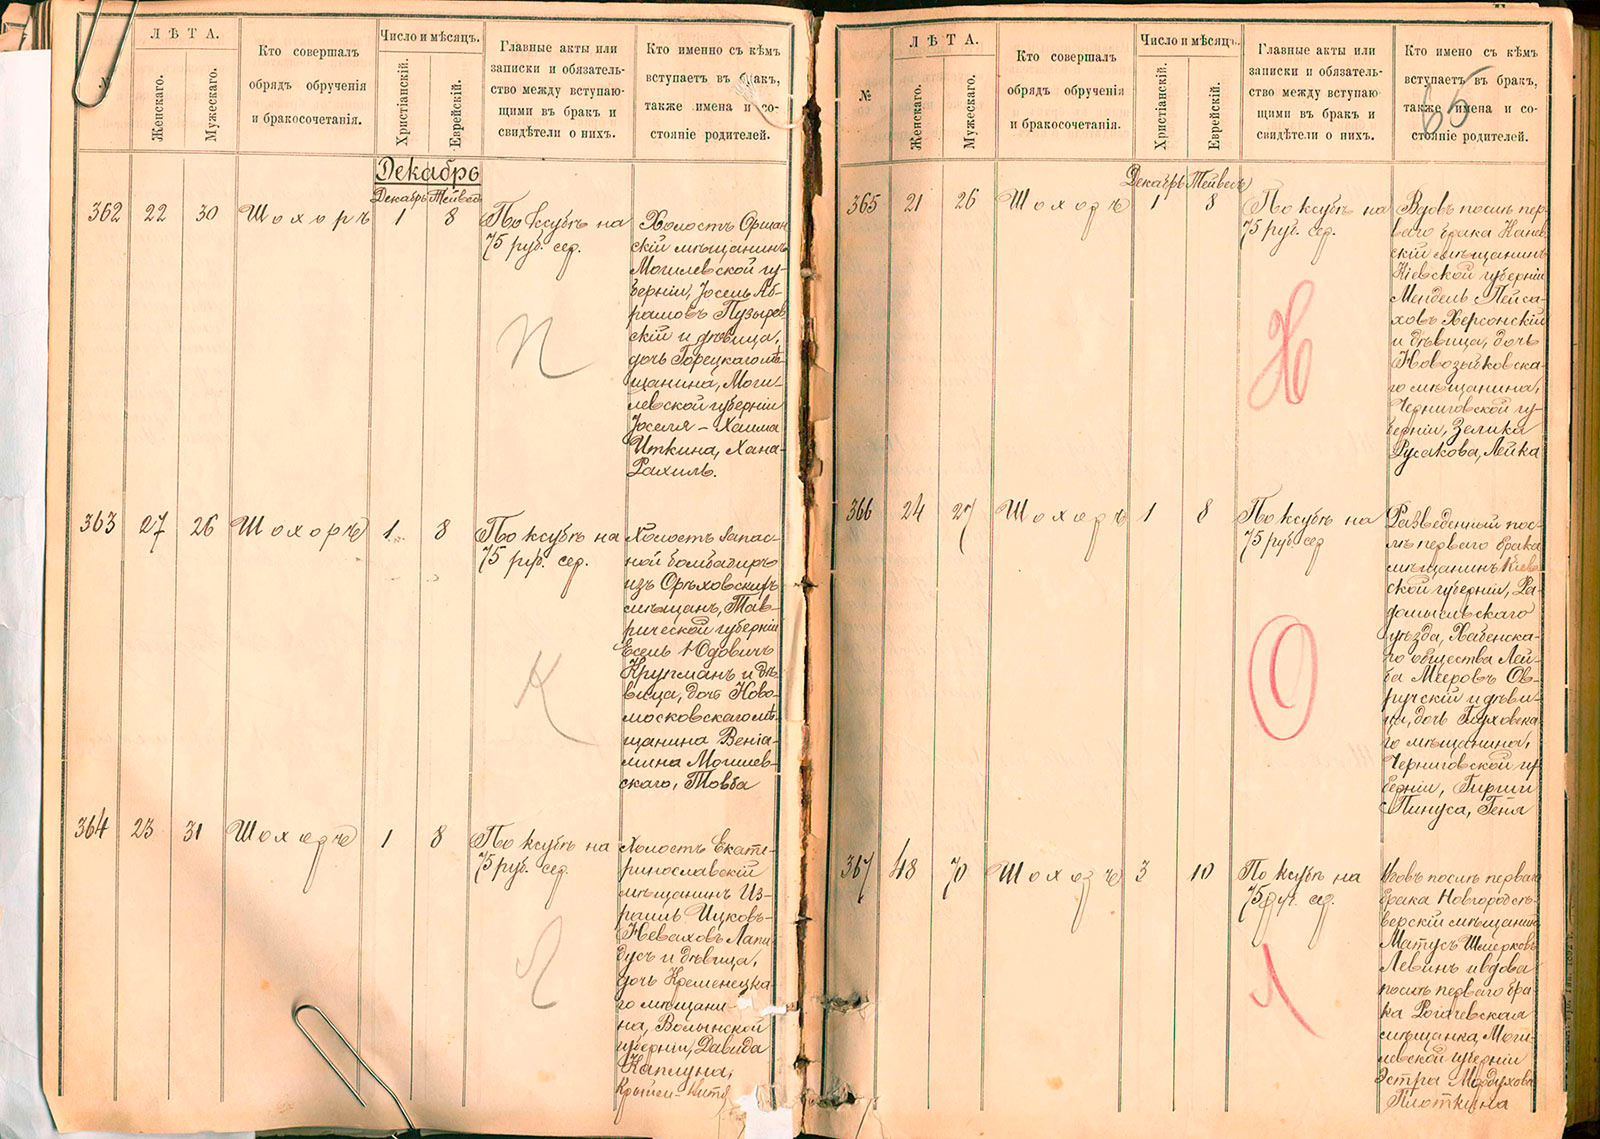 №
ЛѢТА.
Женскаго.
Мужескаго.
Кто совершалъ
обрядъ обрученія
и бракосочетанія.
Число и мѣсяцъ.
Христіанскій.
Еврейскій.
Главные акты или
записки и обязатель-
ство между вступаю-
щими въ бракъ и
свидѣтели о нихъ.
Кто именно съ кѣмъ
вступаетъ въ бракъ,
также имена и со-
стояніе родителей.
Декабрь
Декабрь Тейвесъ
362 22 30 Шохоръ 1 8
По ксубѣ на
75 руб. сер.
Холостъ Оршан-
скій мѣщанинъ
Могилевской гу-
берніи, Іосель Аб-
рамовъ Пузырев-
скій и дѣвица,
дочь Горецкаго мѣ-
щанина, Моги-
левской губерніи
Іоселя-Хаима
Иткина, Хана-
Рахиль.
П
363 27 26 Шохоръ 1 8
По ксубѣ на
75 руб. сер.
Холостъ запас-
ной бомбадиръ
изъ Орѣховскихъ
мѣщанъ, Тав-
рической губерніи
Есель Юдовичъ
Крупманъ и дѣ-
вица, дочь Ново-
московскаго мѣ-
щанина Веніа-
мина Могилев-
скаго, Товба
К
364 23 31 Шохоръ 1 8
По ксубѣ на
75 руб. сер.
Холостъ Екате-
ринославскій
мѣщанинъ Из-
раиль Ицковъ-
Неваховъ Лапи-
дусъ и дѣвица,
дочь Кременецка-
го мѣщани-
на, Волынской
губерніи, Давида
Каплуна,
Крыйем-Итя
Л
№
ЛѢТА.
Женскаго.
Мужескаго.
Кто совершалъ
обрядъ обрученія
и бракосочетанія.
Число и мѣсяцъ.
Христіанскій.
Еврейскій.
Главные акты или
записки и обязатель-
ство между вступаю-
щими въ бракъ и
свидѣтели о нихъ.
Кто имено съ кѣмъ
вступаетъ въ бракъ,
также имена и со-
стояніе родителей.
65
Декабрь Тейвесъ
365 21 26 Шохоръ 1 8
По ксубѣ на
75 руб. сер.
Вдовъ послѣ пер-
ваго брака Канев-
скій мѣщанинъ
Кіевской губерніи
Мендель Пейса-
ховъ Херсонскій
и дѣвица, дочь
Новозыбковска-
го мѣщанина,
Черниговской гу-
берніи, Зелика
Русакова, Лейка
Н
366 24 27 Шохоръ 1 8
По ксубѣ на
75 руб. сер
Разведенный пос-
лѣ перваго брака
мѣщанинъ Кіев-
ской губерніи, Ра-
домысльскаго
уѣзда, Хабенска-
го общества Лей-
ба Мееровъ Ов-
ручскій и дѣви-
ца, дочь Глуховска-
го мѣщанина,
Черниговской гу-
берніи, Гирши
Пинуса, Геня
О
367 48 70 Шохоръ 3 10
По ксубѣ на
75 руб. сер.
Вдовъ послѣ перваго
брака Новгородсѣ-
верскій мѣщанинъ
Матусъ Шмерковъ
Левинъ и вдова
послѣ перваго бра-
ка Рогачевская
мѣщанка, Моги-
левской губерніи
Эстра Мордухова
Плоткина
Л